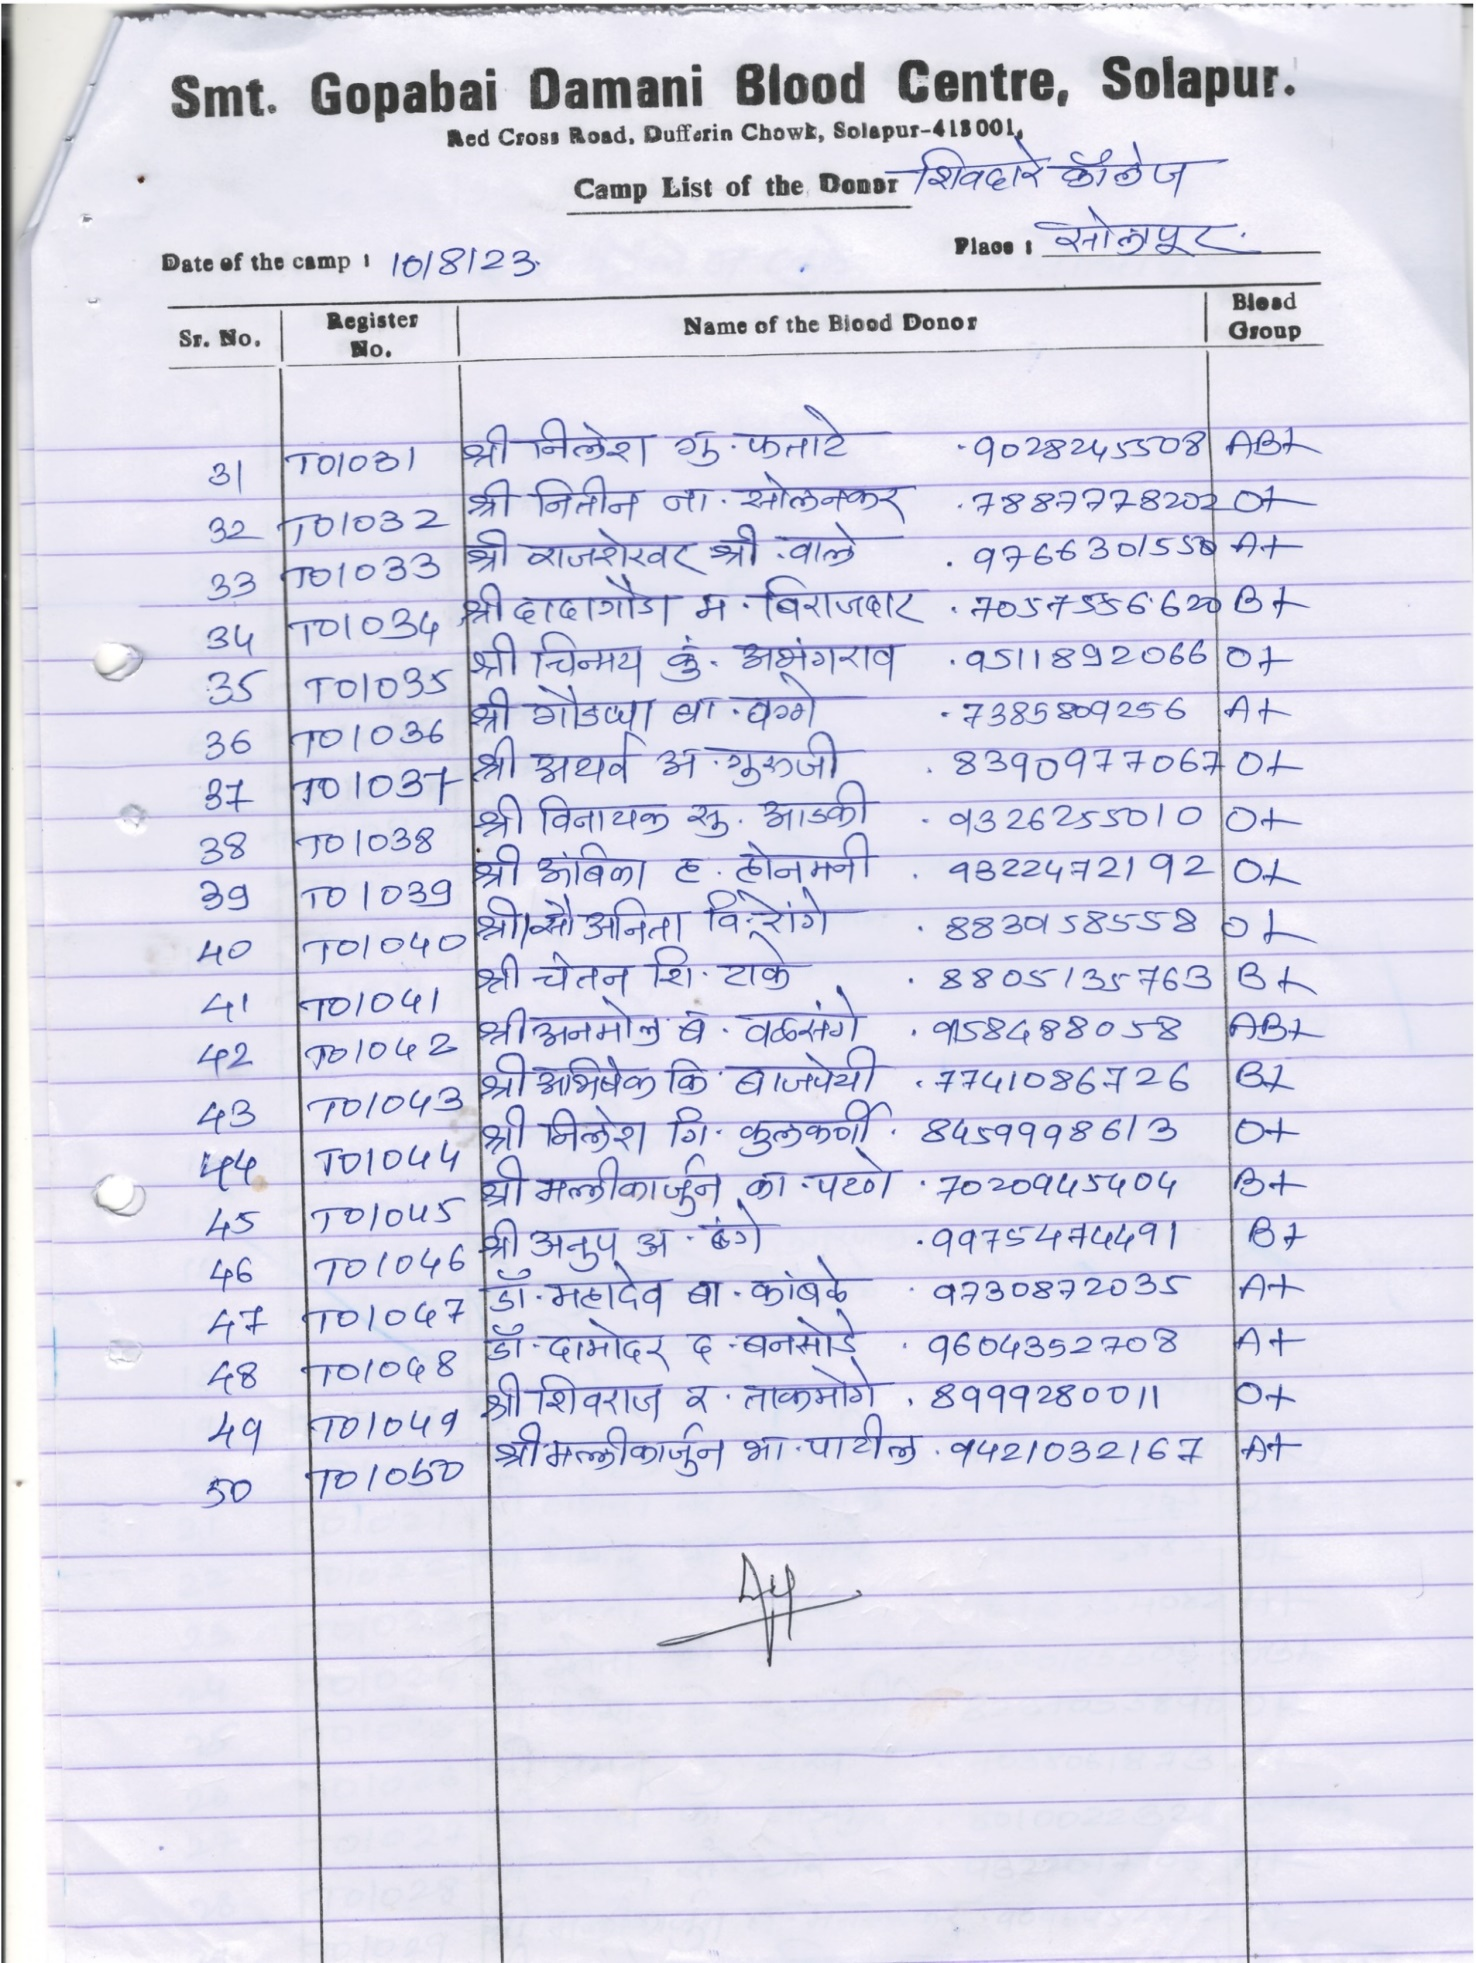 Smt. Gopabai Damani Blood Centre, Solapur.
Red Cross Road, Dufferin Chowk, Solapur-413001,
Camp List of the Donor शिवदारे कॉलेज
Place : सोलापूर.
Date of the camp : 10/8/23.
Sr. No. Register No. Name of the Blood Donor Blood Group
31 T01031 श्री निलेश गु. फताटे .9028245508 AB+
32 T01032 श्री नितीन ना. सोलनकर .7887778202 O+
33 T01033 श्री राजशेखर श्री. वाले .9766301550 A+
34 T01034 श्री दादागौडा म. बिराजदार .7057556620 B+
35 T01035 श्री चिन्मय कुं. अभंगराव .9511892066 O+
36 T01036 श्री गौडप्पा बा. .7385809256 A+
37 T01037 श्री अथर्व अ. गुरुजी .8390977067 O+
38 T01038 श्री विनायक सु. आडकी .9326255010 O+
39 T01039 श्री अंबिका ह. होनमनी .9322472192 O+
40 T01040 श्री/सौ अनिता वि. रोंगे .8830158558 O+
41 T01041 श्री चेतन शि. टाके .8805135763 B+
42 T01042 श्री अनमोल बं. वळसंगे .958488058 AB+
43 T01043 श्री अभिषेक कि. बाजपेयी .7741086726 B+
44 T01044 श्री निलेश गि. कुलकर्णी. 8459998613 O+
45 T01045 श्री मल्लीकार्जुन का. पटणे .7020945404 B+
46 T01046 श्री अनुप अ. .9975474491 B+
47 T01047 डॉ. महादेव बा. कांबळे .9730872035 A+
48 T01048 डॉ. दामोदर द. बनसोडे .9604352708 A+
49 T01049 श्री शिवराज र. ताकमोगे .8999280011 O+
50 T01050 श्री मल्लीकार्जुन भा. पाटील .9421032167 A+